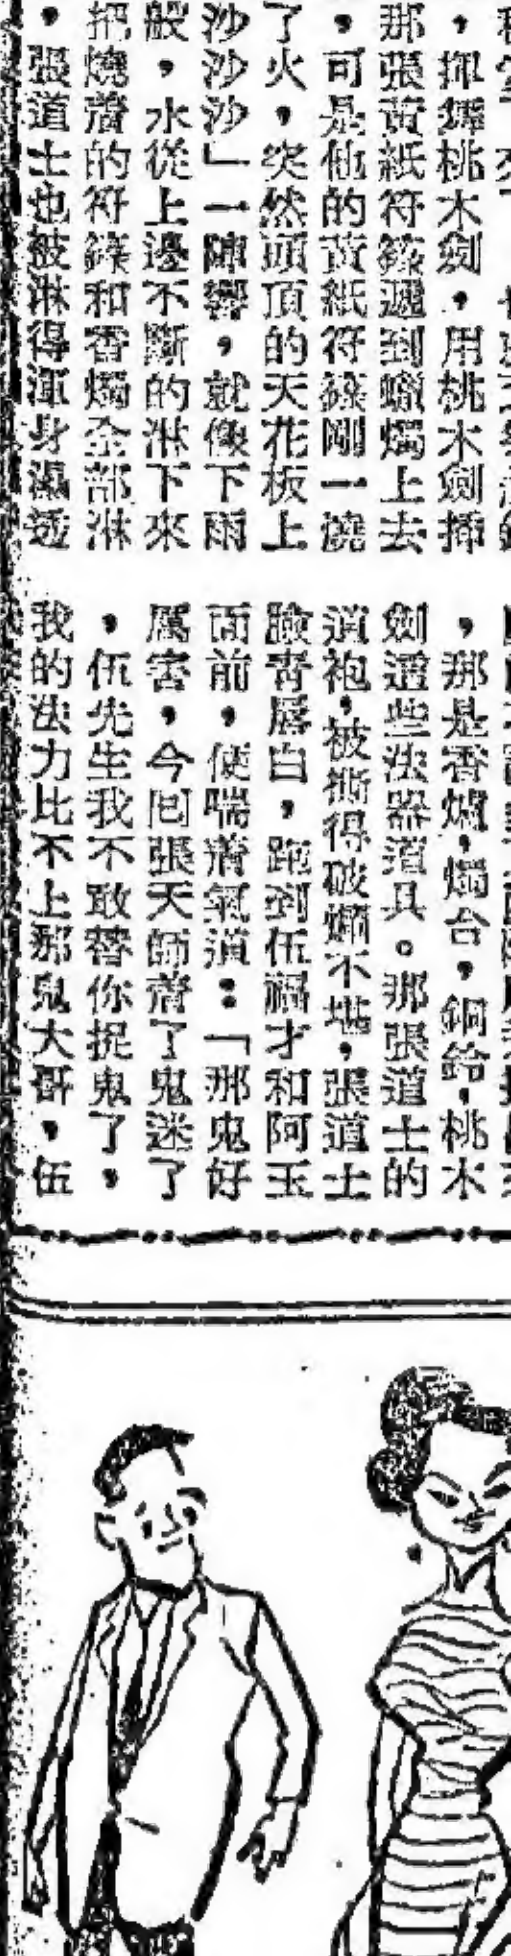 ，揮舞桃木劍，用桃木劍插
那張黃紙符籙遞到蠟燭上去
，可是他的黃紙符籙剛一燒
了火，突然頭頂的天花板上
沙沙沙」一陣響，就像下雨
般，水從上邊不斷的淋下來
把燒着的符籙和香燭全部淋
，張道士也被淋得渾身濕透
，那是香爐，燭台，銅鈴，桃木
劍這些法器道具。那張道士的
道袍，被撕得破爛不堪，張道士
臉青唇白，跑到伍福才和阿玉
面前，便喘着氣道：「那鬼好
厲害，今囘張天師着了鬼迷了
，伍先生我不敢替你捉鬼了，
我的法力比不上那鬼大哥，伍